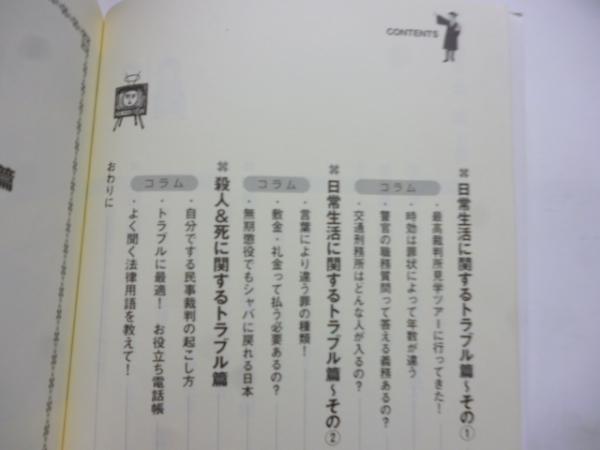 CONTENTS
⌘日常生活に関するトラブル篇～その①
コラム
・最高裁判所見学ツアーに行ってきた！
・時効は罪状によって年数が違う
・警官の職務質問って答える義務あるの？
・交通刑務所はどんな人が入るの？
⌘日常生活に関するトラブル篇～その②
コラム
・言葉により違う罪の種類！
・敷金・礼金って払う必要あるの？
・無期懲役でもシャバに戻れる日本
⌘殺人&死に関するトラブル篇
コラム
・自分でする民事裁判の起こし方
・トラブルに最適！　お役立ち電話帳
・よく聞く法律用語を教えて！
おわりに
篇